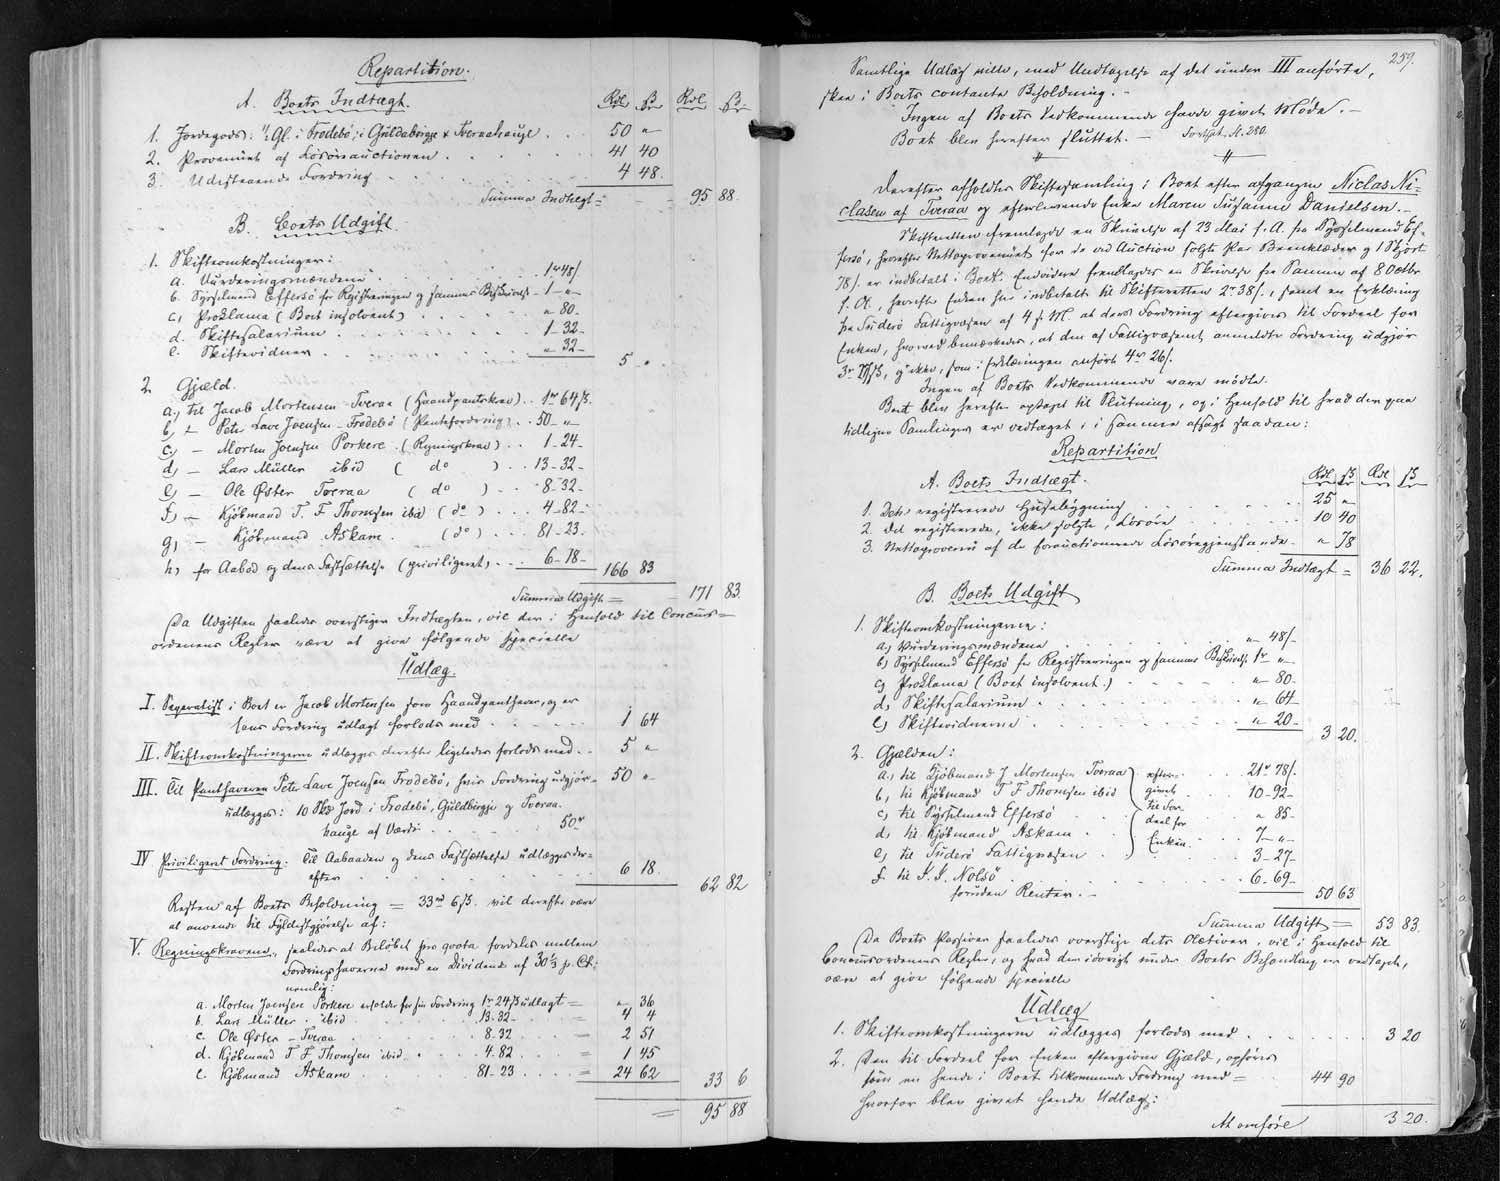 Repartition.
A. Boets Indtægt.
Rdl. ß Rdl. ß
1. Jordegods: ½ Gl. i Frodebø, i Guldabrigge & Tveraahauge . . . 50 "
2. Provenuet af Løsøreauctionen . . . . . 41 40
3. Udestaaende Fordring . . . . . 4 48.
Summa Indtægt = 95 88.
B. Boets Udgift.
1. Skifteomkostninger:
a. Vurderingsmændene . . . . 1 r 48 ß
b. Sysselmand Effersø for Registreringen og sammes Beskrivelse - 1 - " -
c, Proklama (Boet insolvent) . . . . " 80 -
d. Skiftesalarium . . . . 1 - 32 -
e. Skiftevidner . . . . " 32 -
5 " .
2. Gjæld.
a, til Jacob Mortensen Tveraa (Haandpantskrav) . . 1 r 64 ß.
b, - Peter Lave Joensen - Frodebø (Pantefordring) . . 50 - " -
c, - Morten Joensen Porkere . (Regningskrav) . . 1 - 24 -
d, - Lars Müller ibid ( do ) . . 13 - 32 -
e, - Ole Øster Tveraa ( do ) . . 8 - 32 -
f, - Kjøbmand T. F. Thomsen ibid ( do ) . . 4 - 82 -
g, - Kjøbmand Askam . ( do ) . . 81 - 23 -
h, for Aabod og dens Fastsættelse (priviligeret) . . . 6 - 18 -
166 83
Summa Udgift = 171 83.
Da Udgiften saaledes overstiger Indtægten, vil der i Henhold til Concurs=
ordenens Regler være at give følgende specielle
Udlæg.
I. Separatist i Boet er Jacob Mortensen som Haandpanthaver, og er
hans Fordring udlagt forlods med . . . . 1 64
II. Skifteomkostningerne udlægges derefter ligeledes forlods med . . 5 "
III. Til Panthaveren Peter Lave Joensen Frodebø, hvis Fordring udgjør - 50 "
udlægges: 10 Skd Jord i Frodebø, Guldbrigge og Tveraa-
hauge af Værdi . . . . 50 r
IV Priviligeret Fordring. Til Aaboden og dens Fastsættelse udlægges der-
efter . . . . 6 18.
62 82
Resten af Boets Beholdning = 33 rd 6 ß. vil derefter være
at anvende til Fyldestgjørelse af:
V. Regningskravene, saaledes at Beløbet pro qvota fordeles mellem
Fordringshaverne med en Dividende af 30 1/3 p. Ct;
nemlig:
a. Morten Joensen Porkere erholder for sin Fordring 1 r 24 ß udlagt = " 36
b. Lars Müller . ibid . . . . 13. 32 . . = 4 4
c. Ole Øster - Tveraa . . . . 8. 32 . . = 2 51
d. Kjøbmand T F Thomsen ibid . . . 4. 82 . . = 1 45
e. Kjøbmand Askam . . . . 81 - 23 . . = 24 62
33 6
= 95 88
259.
Samtlige Udlæg ville, med Undtagelse af det under III anførte,
skee i Boets contante Beholdning. -
Ingen af Boets Vedkommende havde givet Møde. -
Boet blev herefter sluttet. - Fortsat S. 280.
Derefter afholdtes Skiftesamling i Boet efter afgangen Niclas Ni=
clasen af Tveraa og efterlevende Enke Maren Susanne Danielsen. -
Skifteretten fremlagde en Skrivelse af 23 Mai f. A. fra Sysselmand Ef-
fersø, hvorefter Nettoprovenuet for de ved Auction solgte Par Beenklæder og 1 Skjort
78 ß. er indbetalt i Boet. Endvidere fremlagdes en Skrivelse fra Samme af 8 Octbr
f. A., hvorefter Enken har indbetalt til Skifteretten 2 r 38 ß., samt en Erklæring
fra Suderø Fattigvæsen af 4 d. M. at deres Fordring eftergives til Fordeel for
Enken, hvorved bemærkedes, at den af Fattigvæsenet anmeldte Fordring udgjør
3 r 27 ß, og ikke, som i Erklæringen anført 4 r 26 ß.
Ingen af Boets Vedkommende vare mødte.
Boet blev herefter optaget til Slutning, og i Henhold til hvad der paa
tidligere Samlinger er vedtaget i i samme afsagt saadan:
Repartition
A. Boets Indtægt.
Rdl. ß Rdl ß
1. Den registrerede Huusbygning . . . . 25 "
2. Det registrerede, ikke solgte, Løsøre . . . 10 40
3. Nettoprovenu af de forauctionerede Løsøregjenstande - " 78
Summa Indtægt = 36 22.
B. Boets Udgift
1. Skifteomkostningerne:
a, Vurderingsmændene . . . . " 48 ß
b, Sysselmand Effersø for Registreringen og sammes Beskrivelse 1 r " .
c, Proklama (Boet insolvent.) . . . . " 80 -
d, Skiftesalarium . . . . " 64
e, Skiftevidnerne . . . . " 20 -
3 20.
2. Gjælden:
a, til Kjøbmand J Mortensen Tveraa 21 r 78 ß.
b, til Kjøbmand T F Thomsen ibid 10 - 92 -
c, til Sysselmand Effersø . . " 85 -
d, til Kjøbmand Askam . . 7 - " -
e, til Suderø Fattigvæsen . . 3 - 27 -
efter-
givet
til For-
deel for
Enken.
f. til S. J. Nolsø . . . . 6 - 69 -
foruden Renter. -
50 63
Summa Udgift = 53 83.
Da Boets Passiver saaledes overstige dets Activer, vil i Henhold til
Concursordenens Regler, og hvad der iøvrigt under Boets Behandling er vedtaget,
være at give følgende specielle
Udlæg
1. Skifteomkostningerne udlægges forlods med . . . . 3 20
2. Den til Fordeel for Enken eftergivne Gjæld, opføres
som en hende i Boet tilkommende Fordring med = 44 90
hvorfor blev givet hende Udlæg:
At omføre 3 20.